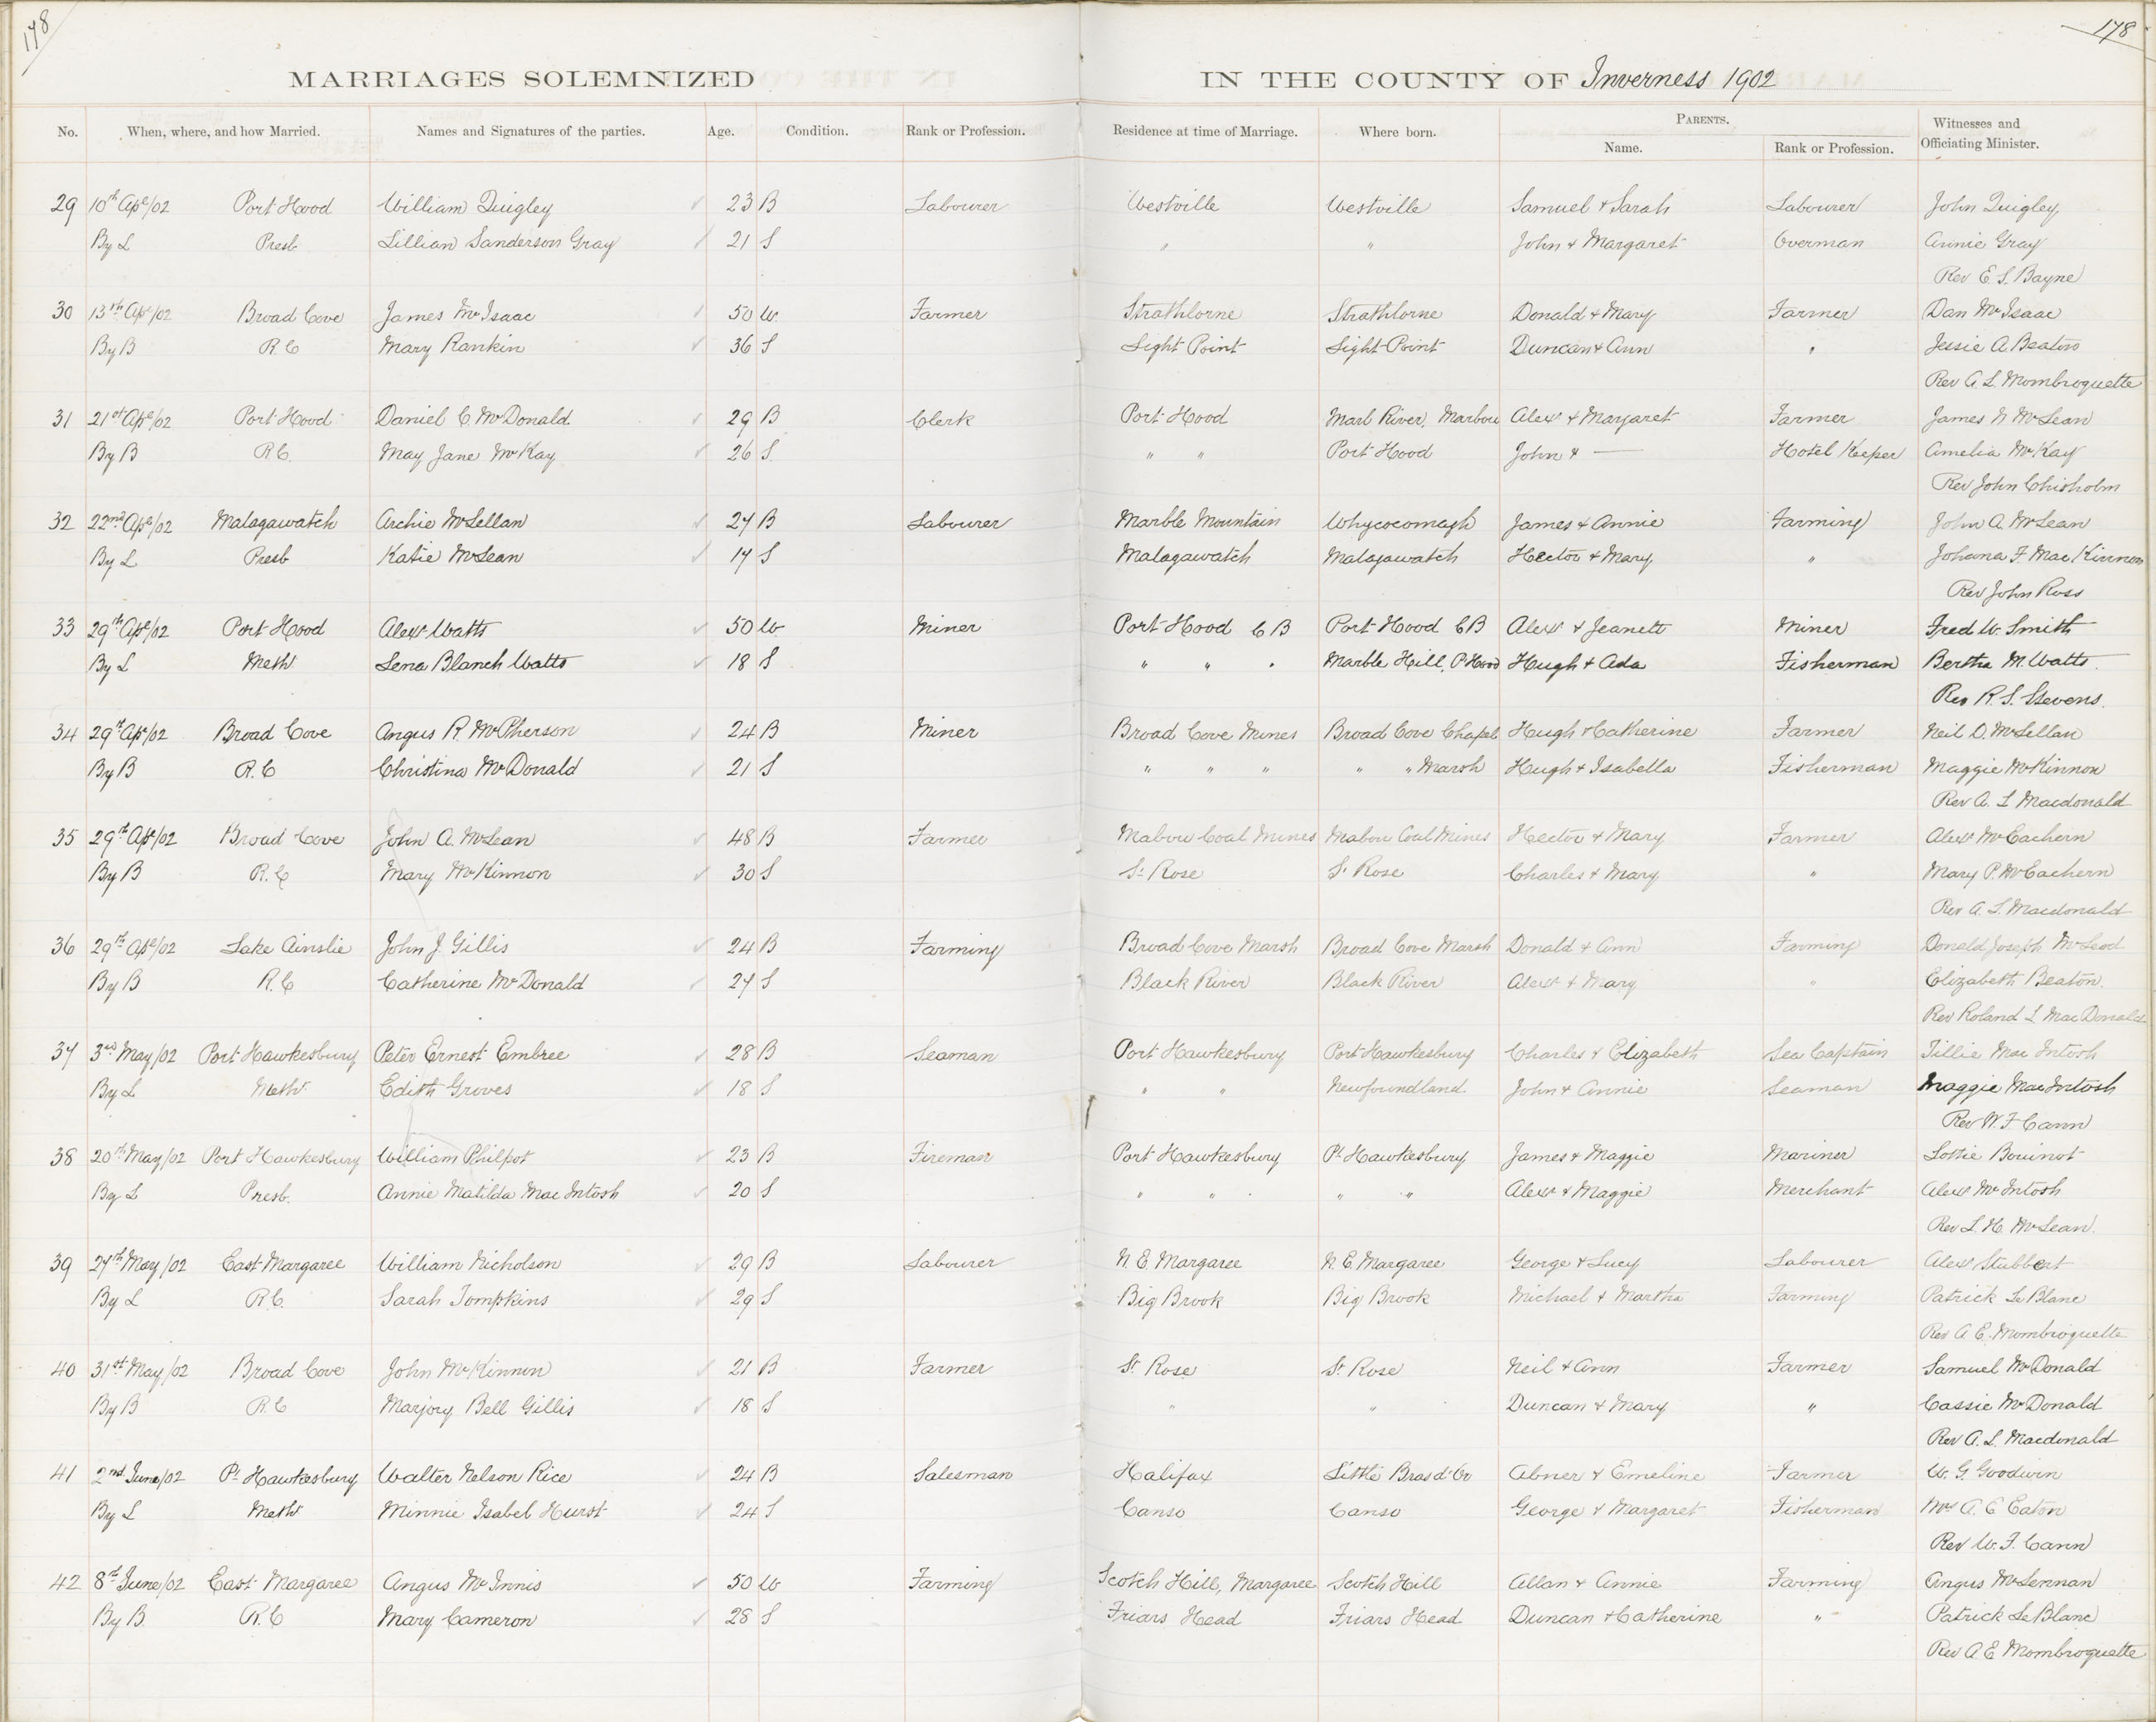 178
178
MARRIAGES SOLEMNIZED IN THE COUNTY OF Inverness 1902
No. When, where, and how Married. Names and Signatures of the parties. Age. Condition. Rank or Profession. Residence at time of Marriage. Where born. PARENTS. Name. Rank or Profession. Witnesses and Officiating Minister.
29 10th Apl/02 Port Hood William Quigley 23 B Labourer Westville Westville Samuel + Sarah Labourer John Quigley
By L Presb Lillian Sanderson Gray 21 S " " John + Margaret Overman Annie Gray
Rev E. S. Bayne
30 13th Apl/02 Broad Cove James McIsaac 50 W Farmer Strathlorne Strathlorne Donald + Mary Farmer Dan McIsaac
By B R.C Mary Rankin 36 S Sight Point Sight Point Duncan + Ann " Jessie A Beaton
Rev A. L. Mombroquette
31 21st Apl/02 Port Hood Daniel C. McDonald 29 B Clerk Port Hood Marl River, Marbou Alexr + Margaret Farmer James N McLean
By B R.C. May Jane McKay 26 S. " " Port Hood John + — Hotel Keeper Amelia McKay
Rev John Chisholm
32 22nd Apl/02 Malagawatch Archie McLellan 27 B Labourer Marble Mountain Whycocomagh James + Annie Farming John A. McLean
By L Presb Katie McLean 17 S Malagawatch Malagawatch Hector + Mary " Johana F. MacKinnon
Rev John Ross
33 29th Apl/02 Port Hood Alexr Watts 50 W Miner Port Hood C B Port Hood C B Alexr + Jeanett Miner Fred W. Smith
By L Meth Lena Blanch Watts 18 S " " " Marble Hill, P Hood Hugh + Ada Fisherman Bertha M. Watts
Rev R. S. Stevens.
34 29th Apl/02 Broad Cove Angus R. McPherson 24 B Miner Broad Cove Mines Broad Cove Chapel Hugh + Catherine Farmer Neil D. McLellan
By B R.C Christina McDonald 21 S " " " " " Marsh Hugh + Isabella Fisherman Maggie McKinnon
Rev A. L Macdonald
35 29th Apl/02 Broad Cove John A. McLean 48 B Farmer Mabou Coal Mines Mabou Coal Mines Hector + Mary Farmer Alexr McEachern
By B R.C Mary McKinnon 30 S St Rose St Rose Charles + Mary " Mary P. McEachern
Rev A. L. Macdonald
36 29th Apl/02 Lake Ainslie John J. Gillis 24 B Farming Broad Cove Marsh Broad Cove Marsh Donald + Ann Farming Donald Joseph McLeod
By B R.C Catherine McDonald 27 S Black River Black River Alexr + Mary " Elizabeth Beaton.
Rev Roland L MacDonald
37 3rd May/02 Port Hawkesbury Peter Ernest Embree 28 B Seaman Port Hawkesbury Port Hawkesbury Charles + Elizabeth Sea Captain Tillie MacIntosh
By L Meth Edith Groves 18 S " " Newfoundland John + Annie Seaman Maggie MacIntosh
Rev W. F Cann
38 20th May/02 Port Hawkesbury William Philpot 23 B Fireman Port Hawkesbury Pt Hawkesbury James + Maggie Mariner Lottie Bouinot
By L Presb. Annie Matilda MacIntosh 20 S " " " " Alexr + Maggie Merchant Alexr McIntosh
Rev L. H. McLean.
39 27th May/02 East Margaree William Nicholson 29 B Labourer N. E. Margaree N. E. Margaree George + Lucy Labourer Alexr Stubbert
By L R.C. Sarah Tompkins 29 S Big Brook Big Brook Michael + Martha Farming Patrick LeBlanc
Rev A E. Mombroquette
40 31st May/02 Broad Cove John McKinnon 21 B Farmer St Rose St Rose Neil + Ann Farmer Samuel McDonald
By B R.C Marjory Bell Gillis 18 S " " Duncan + Mary " Cassie McDonald
Rev A. L. Macdonald
41 2nd June/02 Pt Hawkesbury Walter Nelson Rice 24 B Salesman Halifax Little Bras d'Or Abner + Emeline Farmer W. G. Goodwin
By L Meth Minnie Isabel Hurst 24 S Canso Canso George + Margaret Fisherman Mrs A. C Eaton
Rev W. F. Cann
42 8th June/02 East Margaree Angus McInnis 50 W Farming Scotch Hill, Margaree Scotch Hill Allan + Annie Farming Angus McLennan
By B. R.C Mary Cameron 28 S Friars Head Friars Head Duncan + Catherine " Patrick LeBlanc
Rev A. E Mombroquette